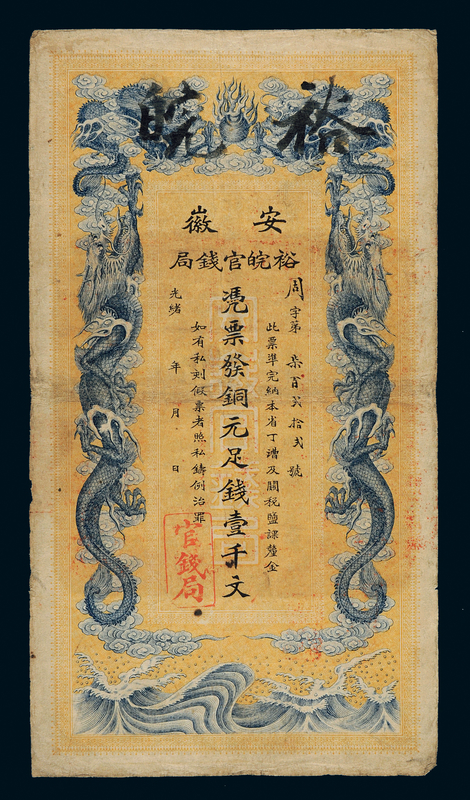 裕皖
安徽
裕皖官錢局
周字第柒百弍拾弍號
此票準完納本省丁漕及關稅鹽課釐金
凴票發銅元足錢壹千文
如有私刻假票者照私鑄例治罪
光緒年月日
官錢局